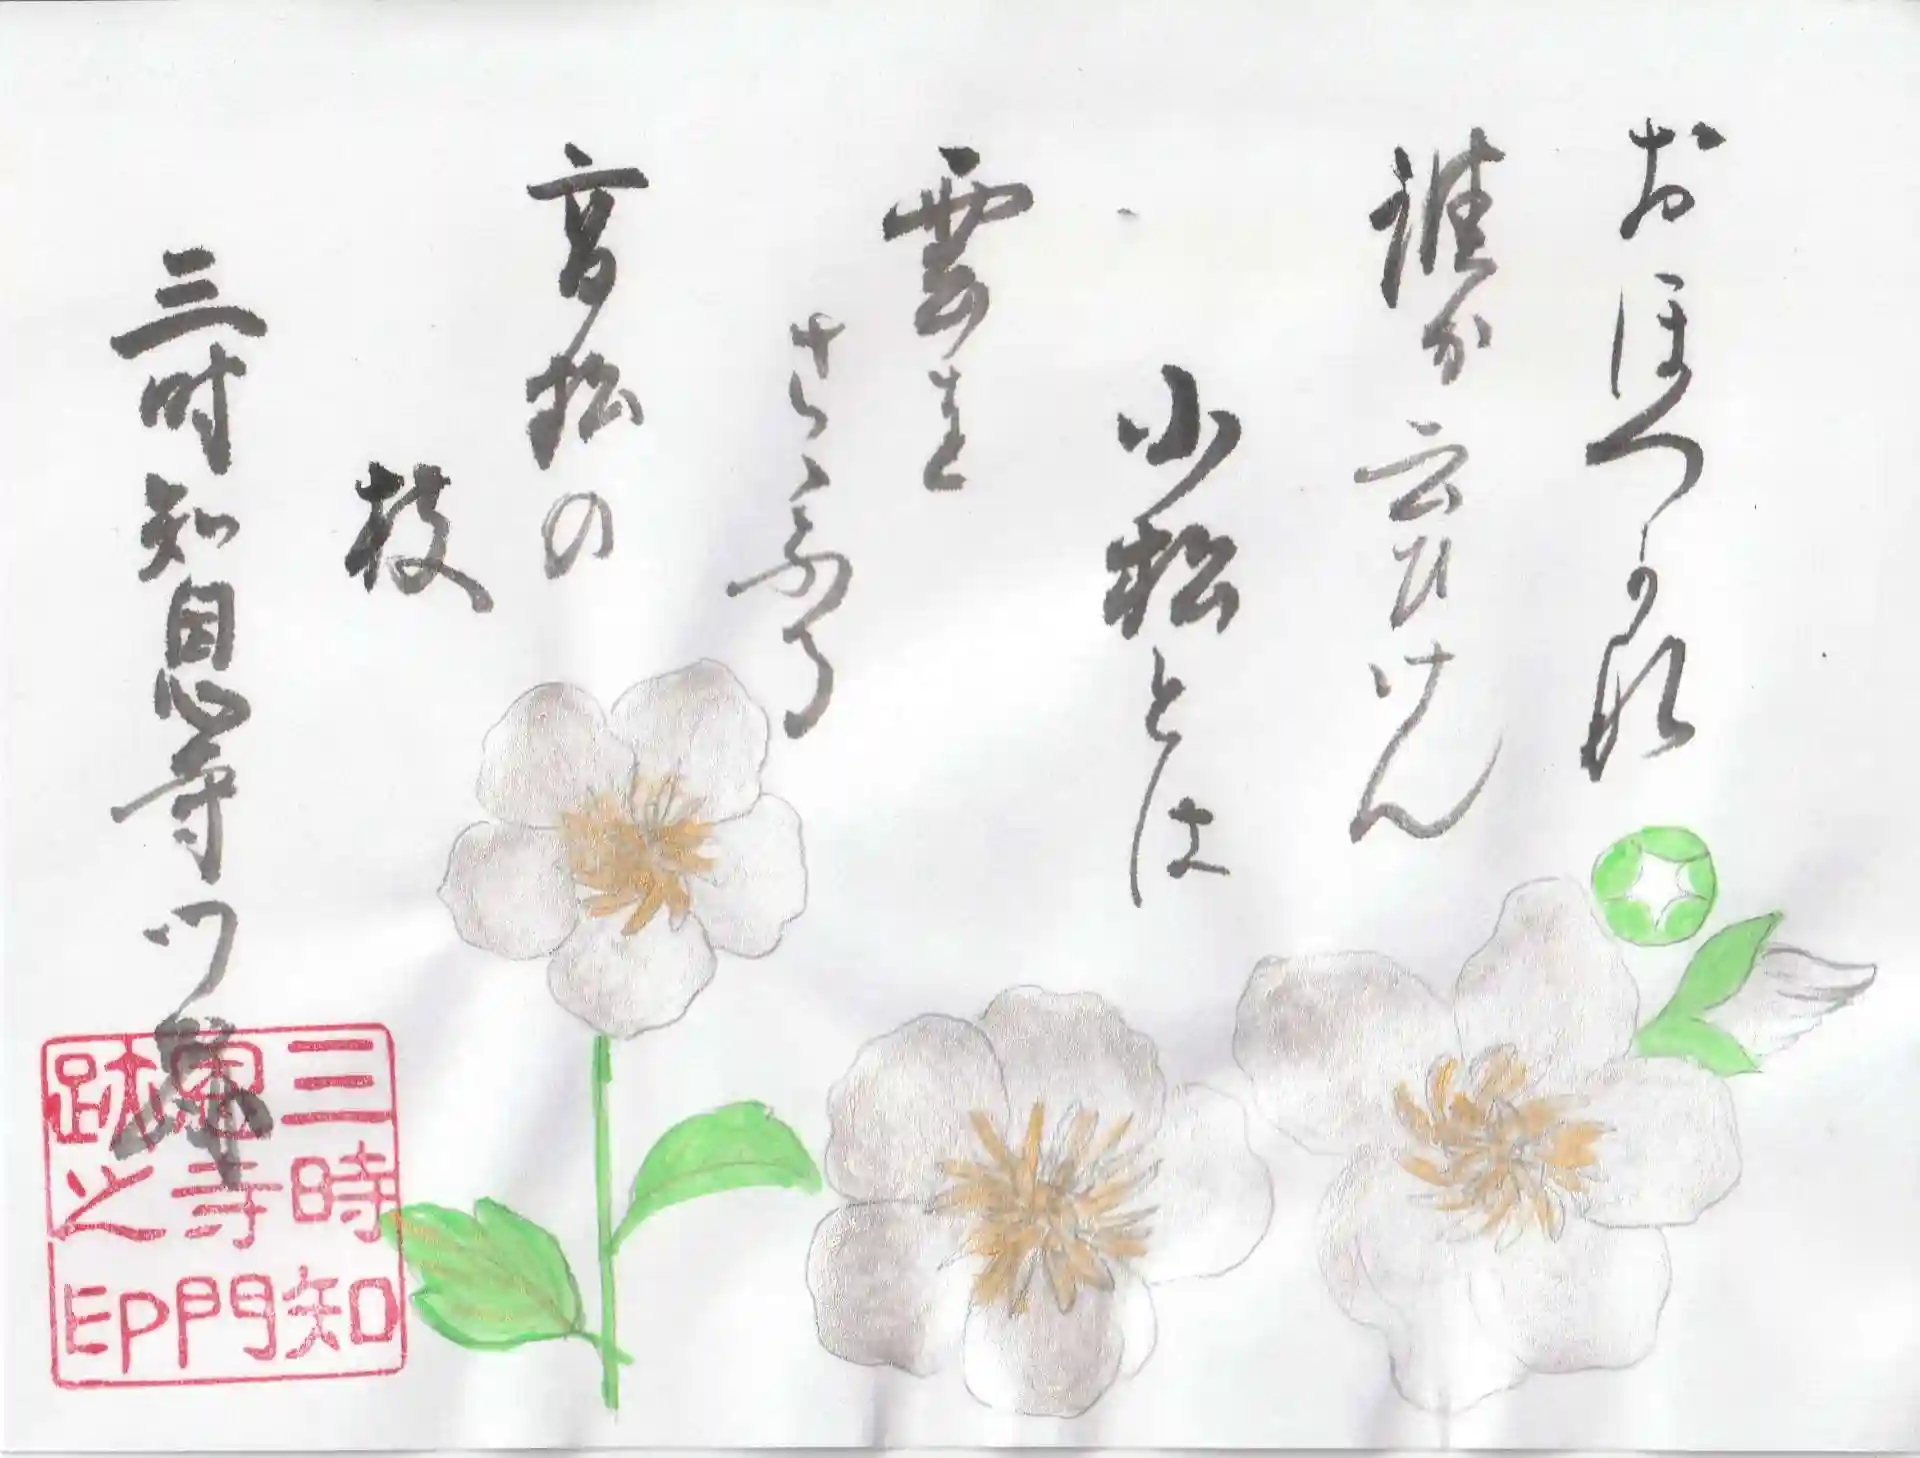 おほつかな
誰か云ひけん
小松とは
雲を
さゝふる
高松の
枝
三時知恩寺門跡
三時知
恩寺門
跡之印